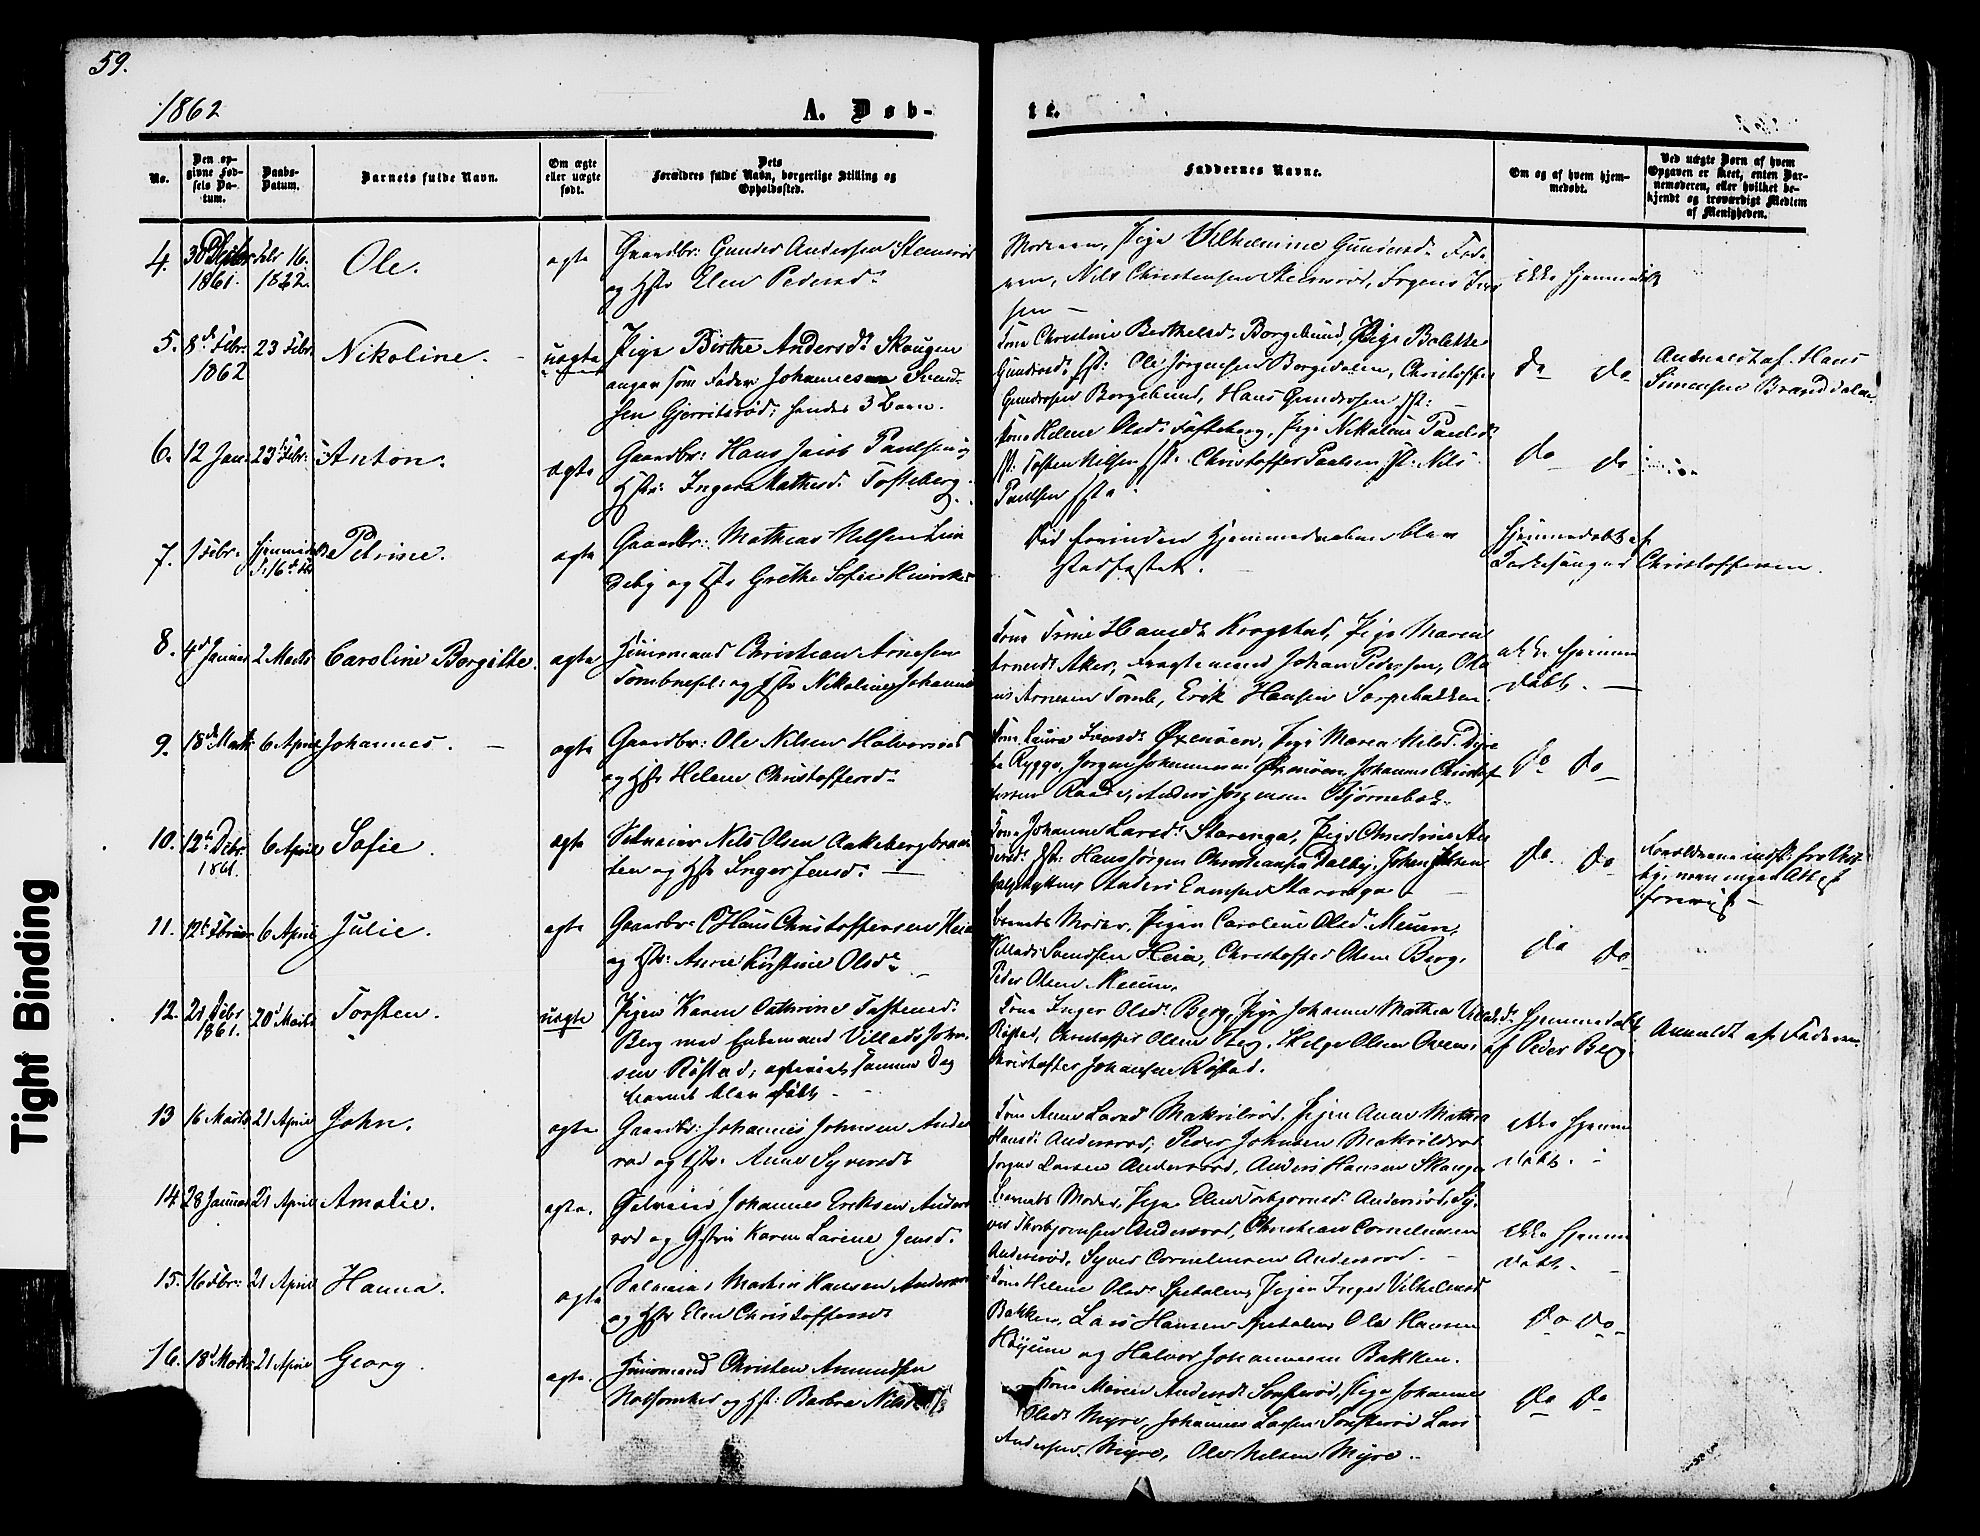 59.
1862
A. Døb-
te.
No.
Den op-
givne Fød-
sels Da-
tum.
Daabs-
Datum.
Barnets fulde Navn.
Om ægte
eller uægte
født.
Dets
Forældres fulde Navn, borgerlige Stilling og
Opholdssted.
Faddernes Navne.
Om og af hvem hjem-
medøbt.
Ved uægte Børn af hvem
Opgaven er skeet, enten Bar-
nemoderen, eller hvilket be-
kjendt og troværdigt Medlem
af Menigheden.
4.
1861.
Febr 16.
1862.
Ole.
ægte
Gaardbr: Gunder Andersen
og Hstr Elen Pedersd:
Moderen, Pige Vilhelmine Gundersd:
Nils Christensen
ikke hjemmedøbt
5.
8d Febr.
1862
23 Febr
Nikoline.
uægte
Pige Birthe Andersd: Skougen
angav som Fader Johannes Svend-
sen hendes 3 Barn.
Kone Christine Berthelsd: Borgebund, Pige Bolette
Gundersd: Ole Jørgensen Borgedalen, Christoffer
Gundersen Borgebund, Hans Gundersen
do do
Anmeldt af Hans
Simensen Branddalen
6.
12 Jan:
23d Febr.
Anton.
ægte
Gaardbr: Hans Jacob Paulsen og
Hstr: Inger Mathisd: Tofteberg.
Kone Helene Olsd: Tofteberg, Pige Nikoline Paulsd:
Torsten Nilsen Christoffer Paulsen Nils
Paulsen
do do
7.
1 Febr.
Hjemmedøbt
Petrine.
ægte
Gaardbr: Mathias Nilsen Lun
deby og Hstr Grethe Sofie Henriksd
Ved Hjemmedaaben blev
stadfæstet.
Hjemmedøbt af
Kirkesanger Christoffersen.
8.
4d Januar
2 Marts
Caroline Borgitte.
ægte
Huusmand Christian Arnesen
og Hstr Nikoline Johannesd
Kone Trine Hansd: Krogstad, Pige Maren
Arnesd: Aker, Johan Pedersen, Ole
Arnesen Tomb, Erik Hansen
ikke hjemme
døbt.
9.
18de Marts
6 April
Johannes.
ægte
Gaardbr: Ole Nilsen Halvorsrød
og Hstr Helene Christoffersd:
Kone Laura Øxenøen, Pige Maren Nilsd:
Rygge, Jørgen Johannesen Øxenøen Johannes Christof
fersen Raade, Anders Jørgensen Bjørnebek.
do do
10.
12te Debr.
1861.
6 April
Sofie
ægte
Selveier Nils Olsen Aakebergbraa
ten og Hstr Inger Jensd:
Kone Johanne Larsd: Starengen, Pige Christine An
dersd: Hans Jørgen Christiansen Dalby, Johan
Anders Starengen
do do
11.
12te Februar
6 April
Julie.
ægte
Gaardbr: Hans Christoffersen Heia
og Hstr: Anne Kirstine Olsd:
Barnets Moder, Pigen Caroline Olsd:
Villads Svendsen Heia, Christoffer Olsen Berg,
Peder Olsen
do do
12.
21 Debr
1861.
20d Marts
Torsten.
uægte
Pigen Karen Cathrine Torstensd:
Berg med Enkemand Villads Johan
sen Røstad, ægteviet samme Dag
Barnet blev døbt.
Kone Inger Olsd: Berg, Pige Johanne Mathea Villadsd:
Røstad, Christoffer Olsen Berg, Helge Olsen
Christoffer Johansen Røstad.
Hjemmedøbt
af Peder Berg.
Anmeldt af Faderen
13
16 Marts
21 April
John.
ægte
Gaardbr: Johannes Johnsen Anders
rød og Hstr. Anne Syversd:
Kone Anne Larsd: Makrilrød, Pigen Anne Mathea
Hansd: Andersrød, Peder Johnsen
Larsen Andersrød, Anders Hansen Skougen
ikke hjemme
døbt.
14
28 Januar
21 April
Amalie.
ægte.
Selveier Johannes Eriksen Anders
rød og Hstru Karen Larine Jensd:
Barnets Moder, Pige Elen Torbjørnsd: Andersrød, Sy-
ver Thorbjørnsen Andersrød, Christian Corneliussen
Andersrød, Syver Corneliussen Andersrød
ikke hjemme
døbt.
15.
16 Febr:
21 April
Hanna.
ægte
Selveier Martin Hansen Andersrød
og Hstr Elen Christoffersd:
Kone Helene Olsd: Spetalen, Pigen Inger Vilhelmsd
Bakken, Lars Hansen Spetalen Ole Hansen
Høyum og Halvor Johannesen Bakken.
do do
16.
18d Marts
21 April
Georg.
ægte.
Huusmand Christen Amundsen
og Hstr: Barbra Nilsd:
Kone Maren Andersd: Sonsterød, Pige Johanne
Olsd: Myre, Johannes Larsen Sonsterød Lars
Andersen Myre, Ole Nilsen Myre.
do do
Tight Binding